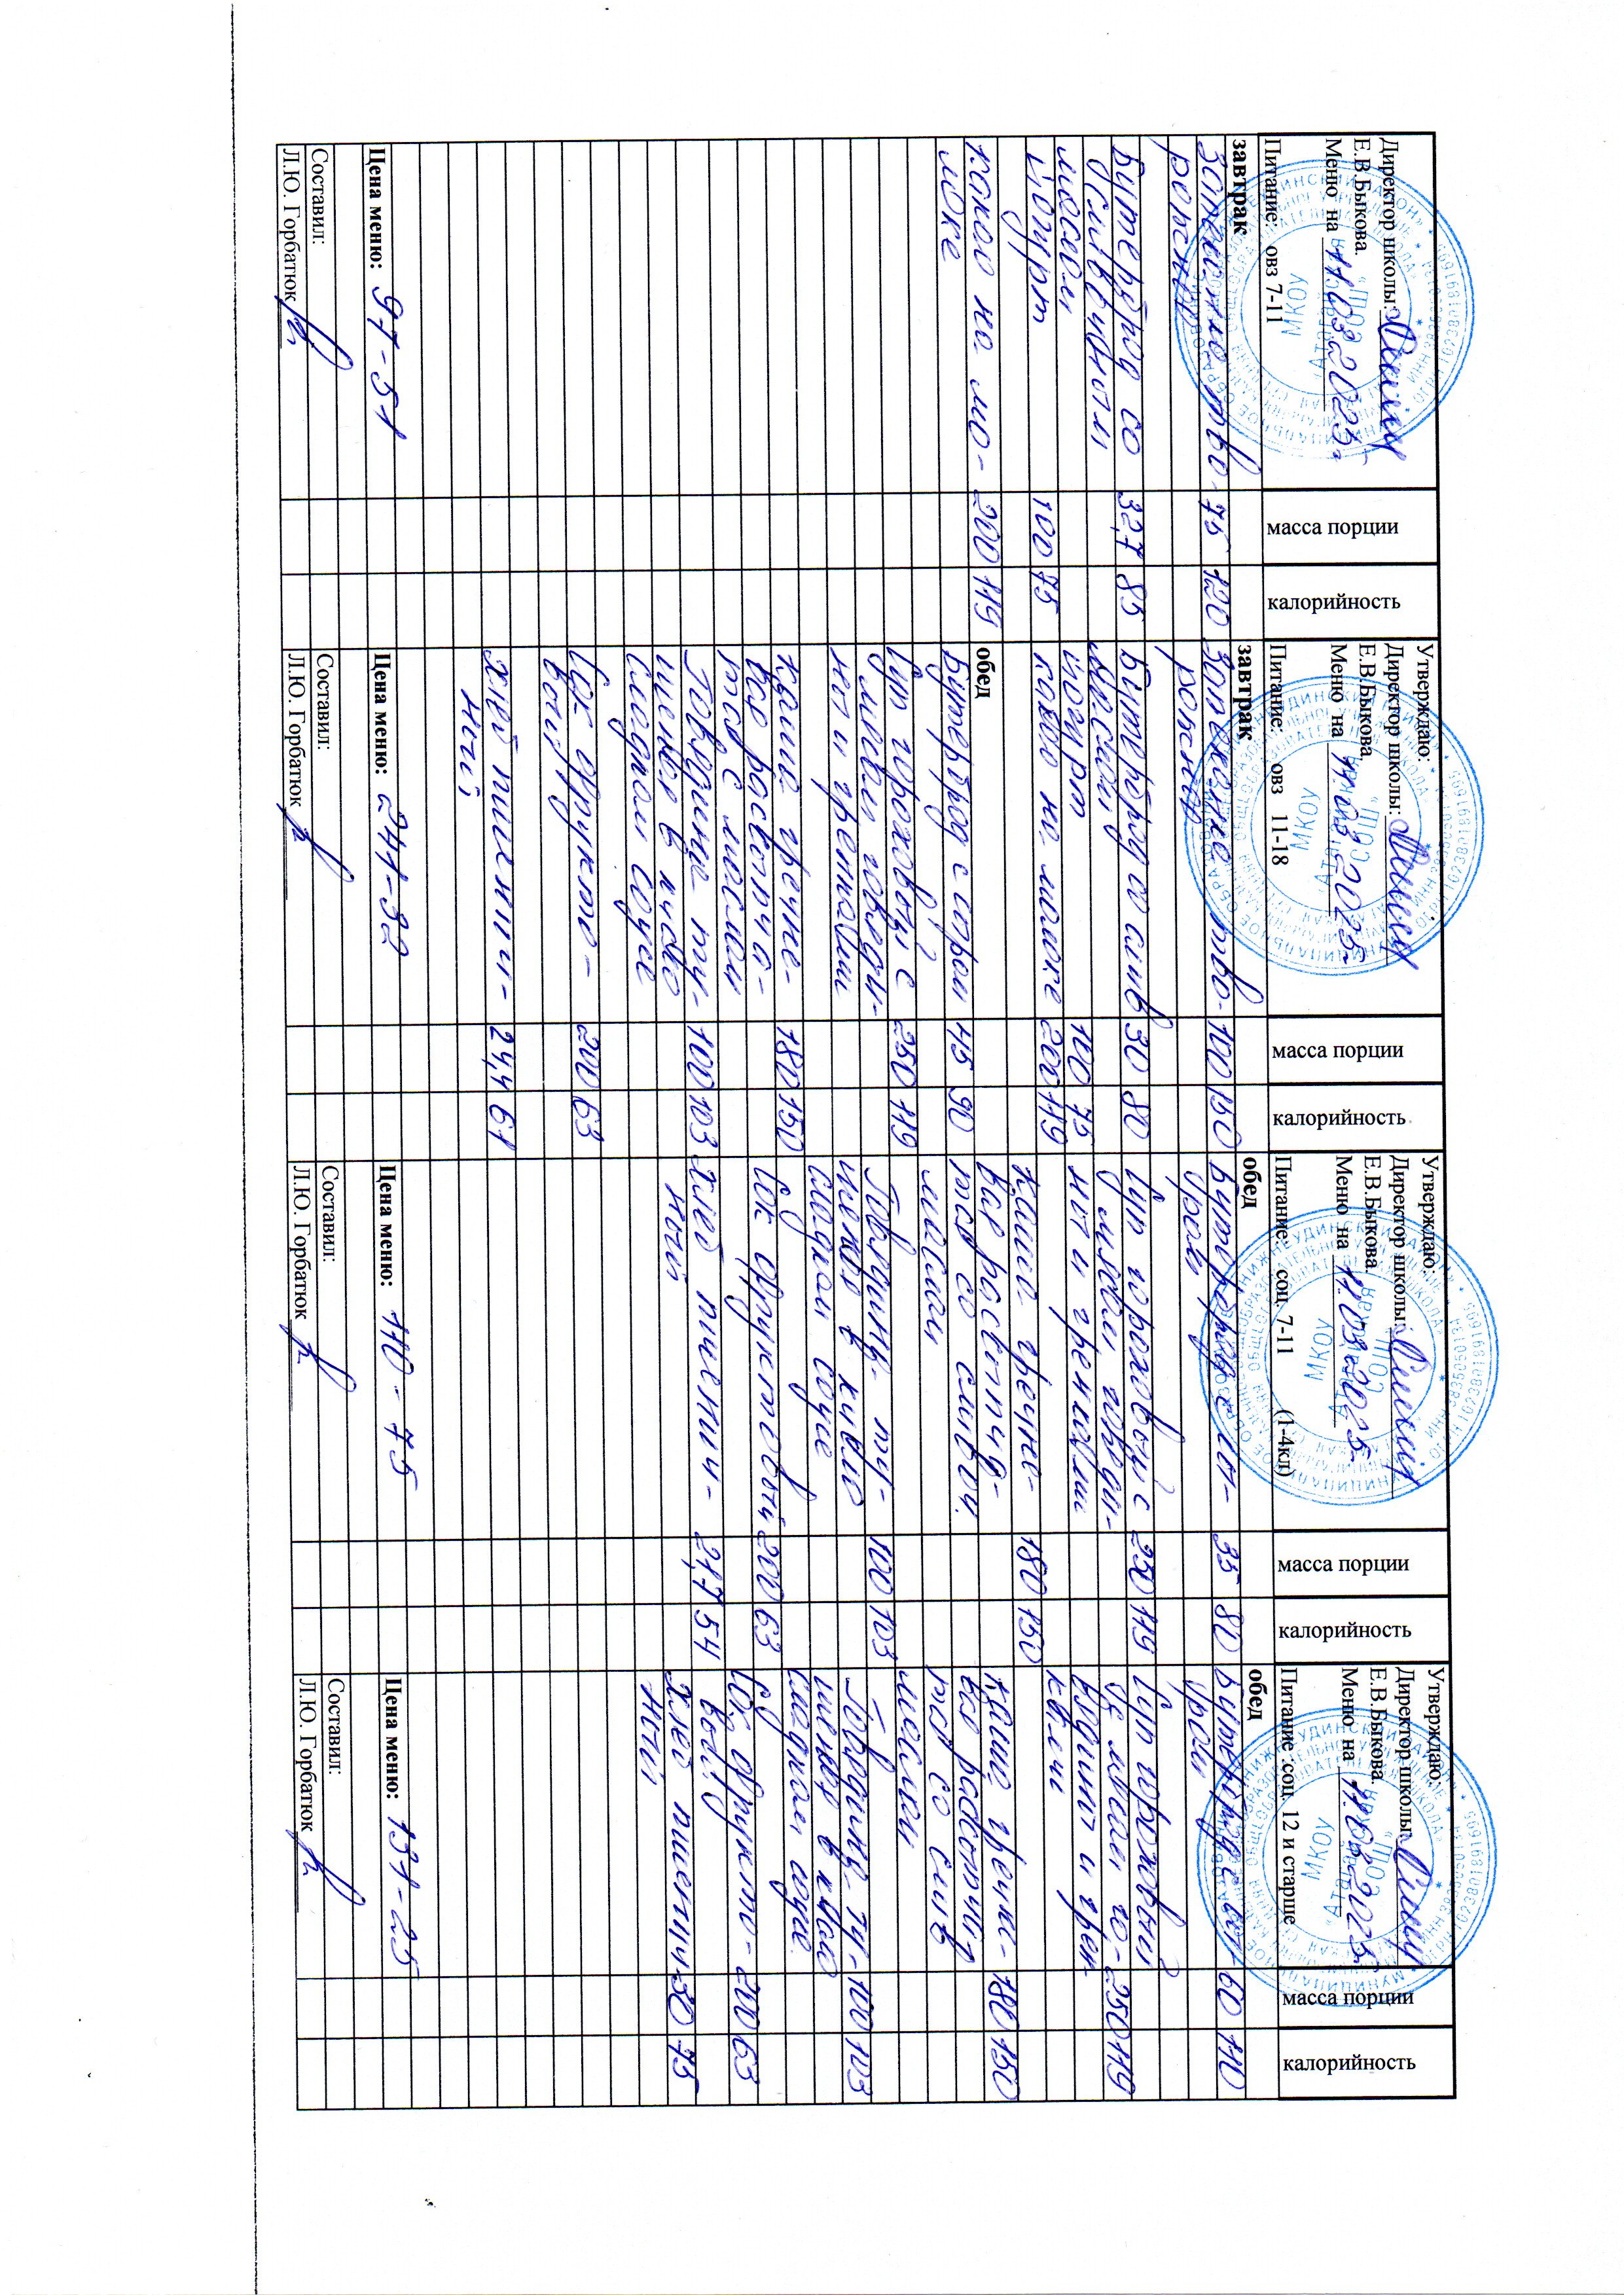 Директор школы:
Е.В.Быкова.
Меню на 11.03.2025г
Питание: овз 7-11
масса порции
калорийность
завтрак
Запеканка тво- 75 120
рожная
Бутерброд со 32,7 85
сливочным
маслом
Йогурт 100 75
какао на мо- 200 119
локе
Цена меню: 97-51
Составил:
Л.Ю. Горбатюк
Утверждаю:
Директор школы:
Е.В.Быкова.
Меню на 11.03.2025г
Питание: овз 11-18
масса порции
калорийность
завтрак
Запеканка тво- 100 150
рожная
Бутерброд со слив 30 80
маслом
йогурт 100 75
какао на молоке 200 119
обед
Бутерброд с сыром 45 90
Суп гороховый с 250 119
мясом говяди-
ны и гренками
каша гречне- 180 150
вая рассыпча-
тая с маслом
Говядина ту- 100 103
шеная в кисло
сладком соусе
Сок фрукто- 200 63
вый
Хлеб пшенич- 24,4 61
ный
Цена меню: 241-32
Составил:
Л.Ю. Горбатюк
Утверждаю:
Директор школы:
Е.В.Быкова.
Меню на 11.03.2025
Питание: соц. 7-11 (1-4кл)
масса порции
калорийность
обед
35 80
Суп гороховый с 250 119
мясом говяди-
ны и гренками
Каша гречне- 180 150
вая рассыпча-
тая со сливоч.
маслом
Говядина ту- 100 103
шеная в кисло
сладком соусе
Сок фруктовый 200 63
Хлеб пшенич- 21,7 54
ный
Цена меню: 110-75
Составил:
Л.Ю. Горбатюк
Утверждаю:
Директор школы:
Е.В.Быкова.
Меню на 11.03.2025
Питание :соц. 12 и старше
масса порции
калорийность
обед
60 110
Суп гороховый
с мясом го- 250 119
вядины и грен-
ками
каша гречне- 180 150
вая рассыпча
тая со слив
маслом
Говядина ту- 100 103
шеная в кисло
сладком соусе
Сок фрукто- 200 63
вый
Хлеб пшенич- 30 75
ный
Цена меню: 131-25
Составил:
Л.Ю. Горбатюк